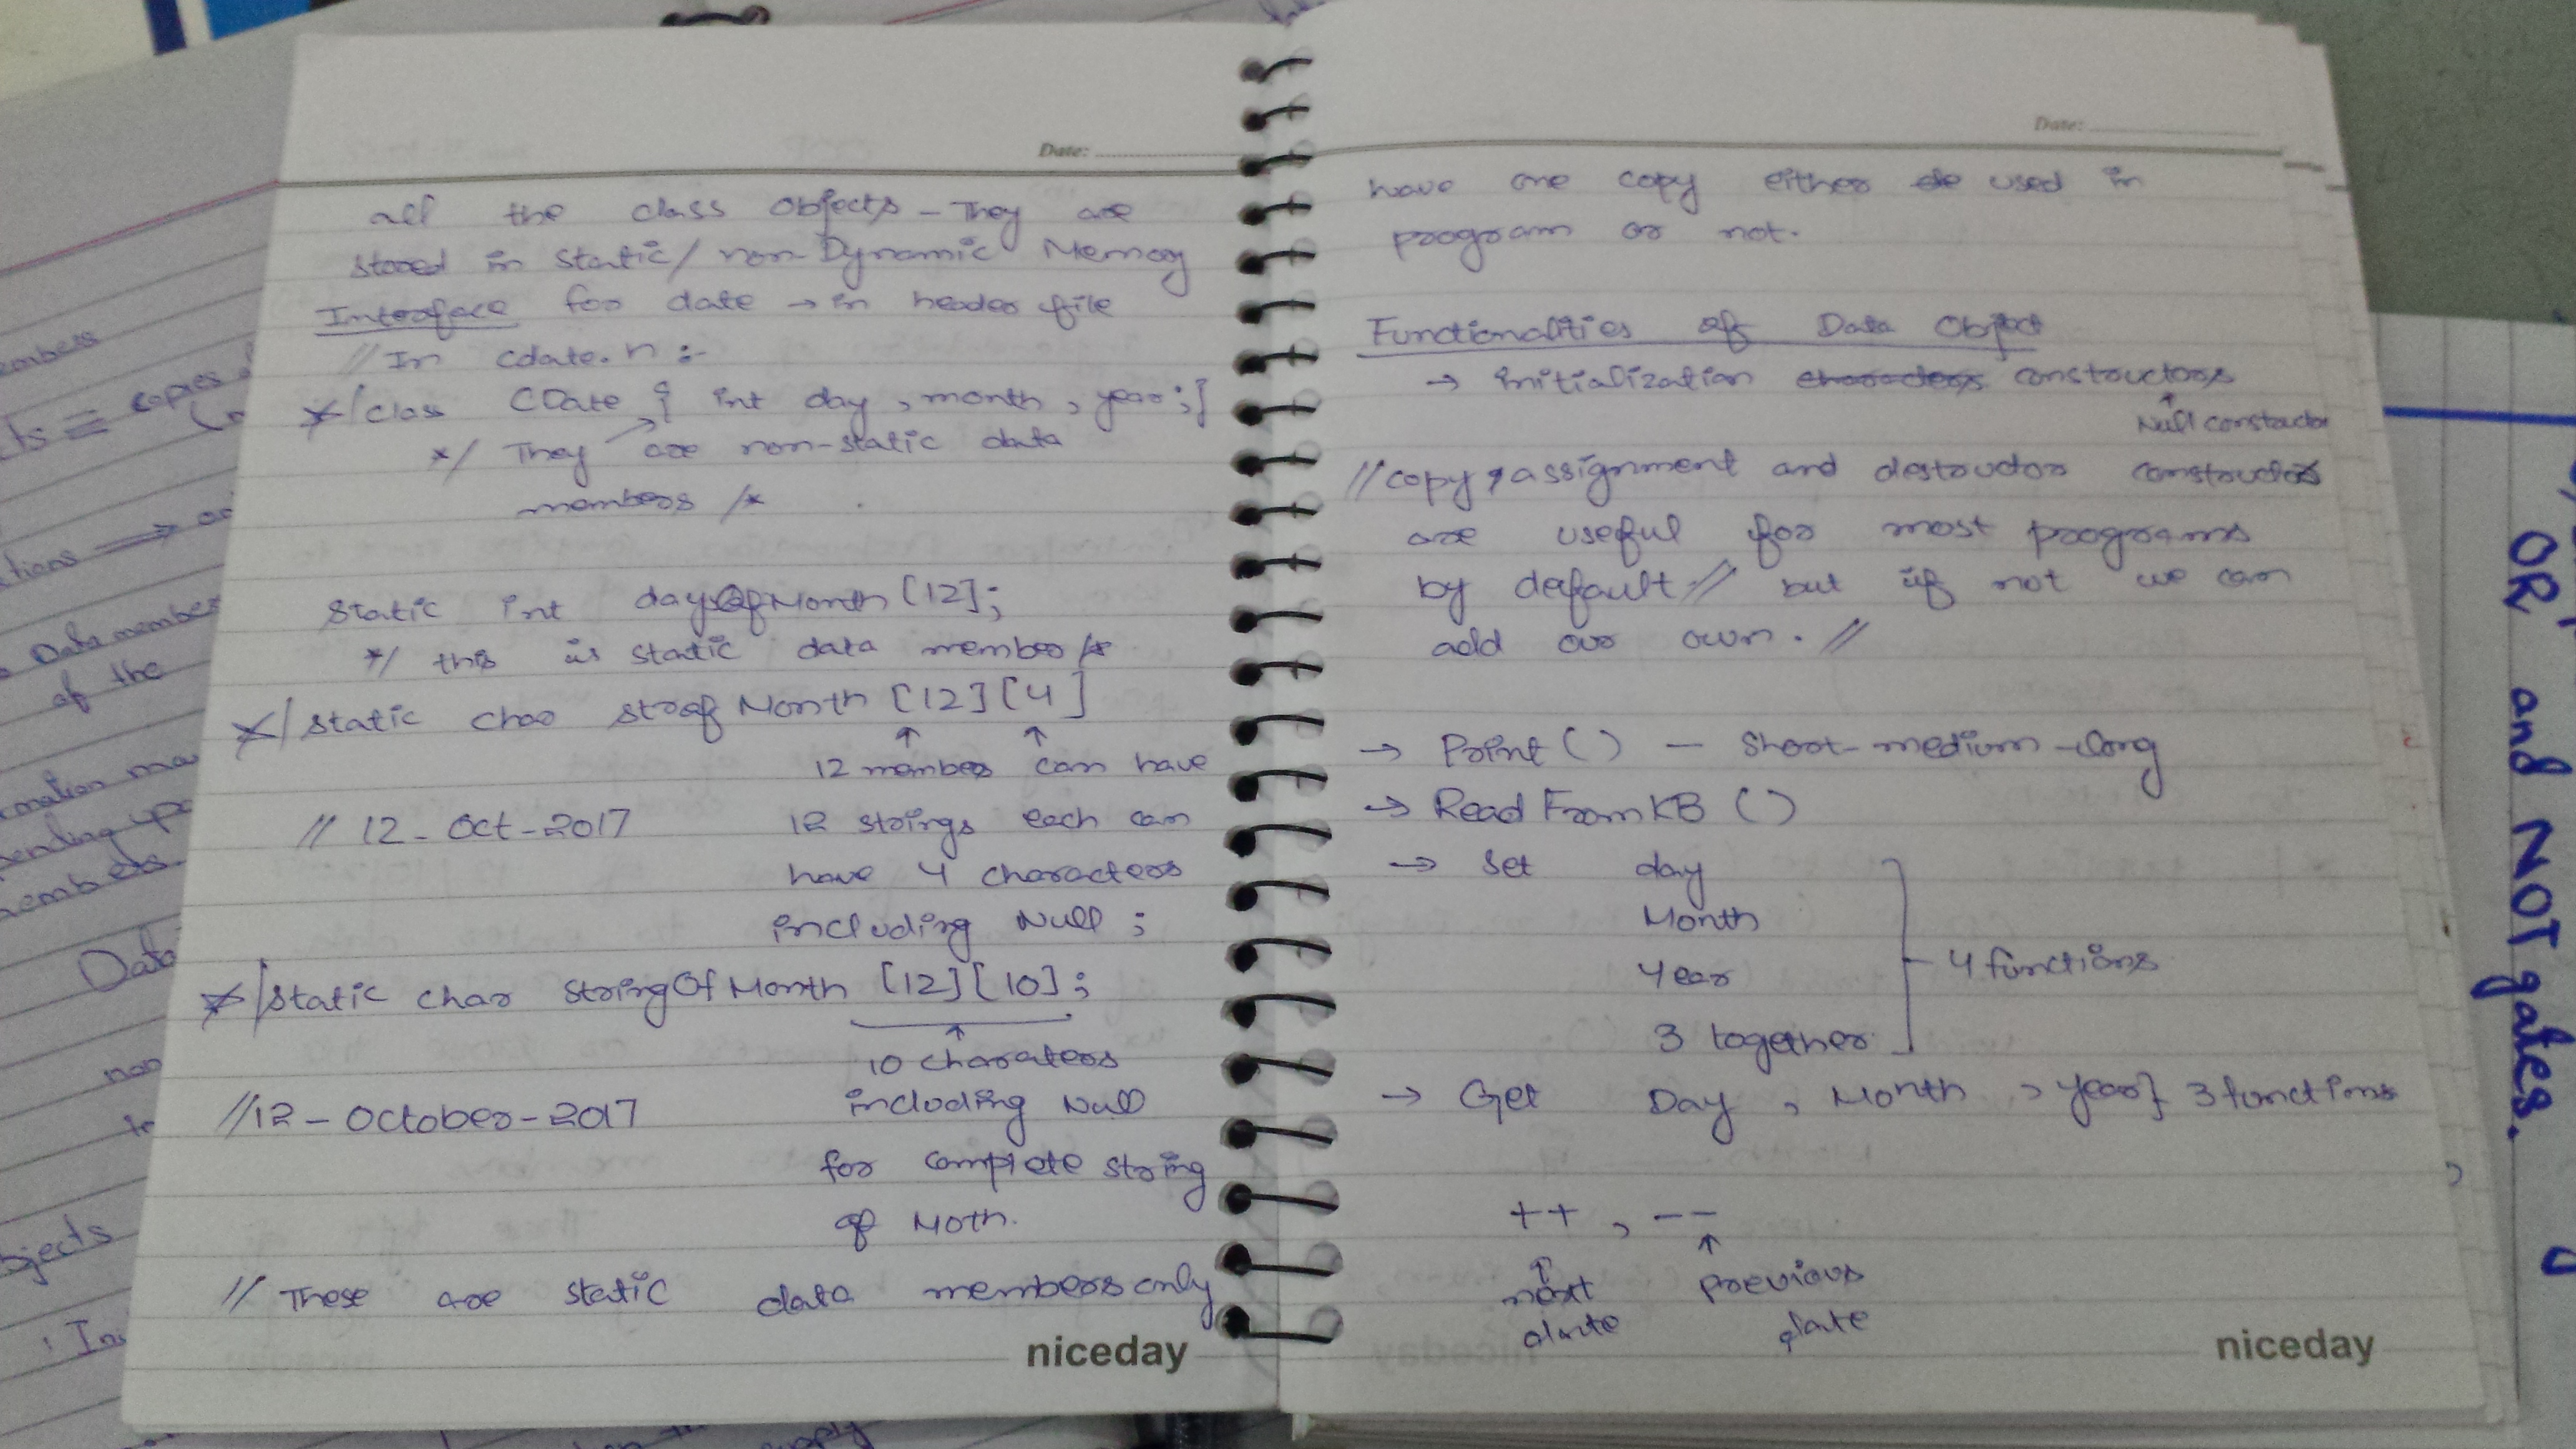 Date:
all the class objects - They are
stored in static/ non-Dynamic Memory
Interface for date → in header file
// In cdate.h :-
*/ class CDate { int day , month , year ; }
*/ They are non-static data
members /*
static int daysOfMonth [12];
*/ this is static data member /*
*/ static char strofMonth [12] [4]
↑ ↑
12 members can have
// 12 - Oct - 2017 12 strings each can
have 4 characters
including Null ;
*/ static char stringOfMonth [12] [10] ;
↑
10 charaters
//12 - October - 2017 including Null
for complete string
of Moth.
// These are static data members only
niceday
Date:
have one copy either de used in
program or not.
Functionalities of Data Object
→ initialization characters constructors
↑
Null constactor
// copy , assignment and destructor constructors
are useful for most programs
by default // but if not we can
add our own. //
→ Print ( ) - Short - medium - long
→ Read FromKB ( )
→ set day
Month
Year
4 functions
3 together
→ Get Day , Month , year} 3 functions
++ , --
↑ ↑
next previous
date date
niceday
embers
copies
tions ⟹
Data member
of the
mation
ending
embers
Data
non
to
bjects
OR and NOT gates.